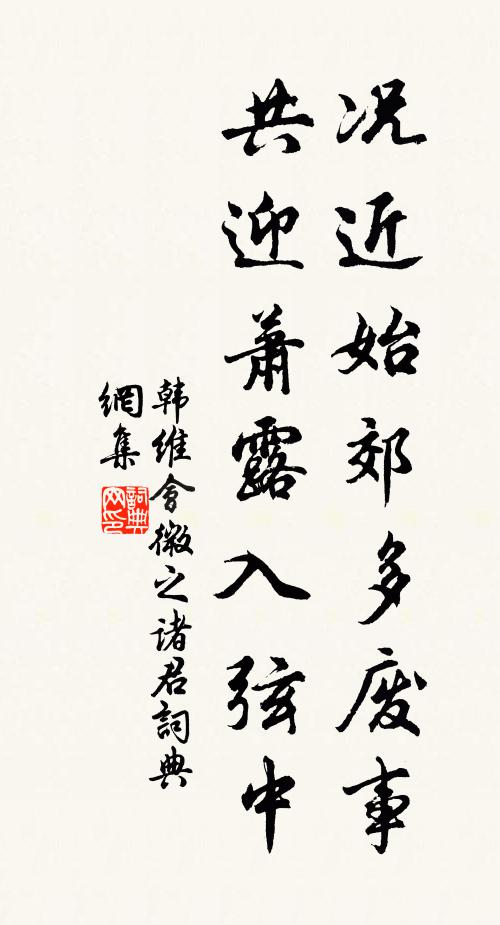 况近始郊多废事
共迎萧露入弦中
韩维会微之诸君詞典
網集
詞典
网印